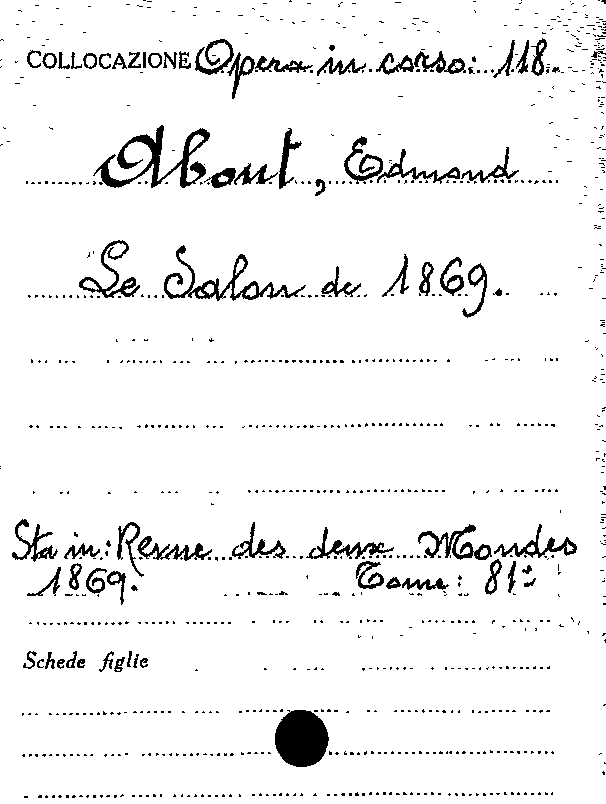 COLLOCAZIONE Opera in corso: 118.
About, Edmond
Le Salon de 1869.
Sta in: Revue des deux Mondes
1869. Tome: 81º
Schede figlie